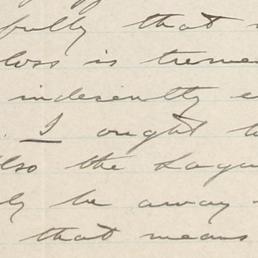 fully that
loss is
indecently
. I ought
also the
be away
that means